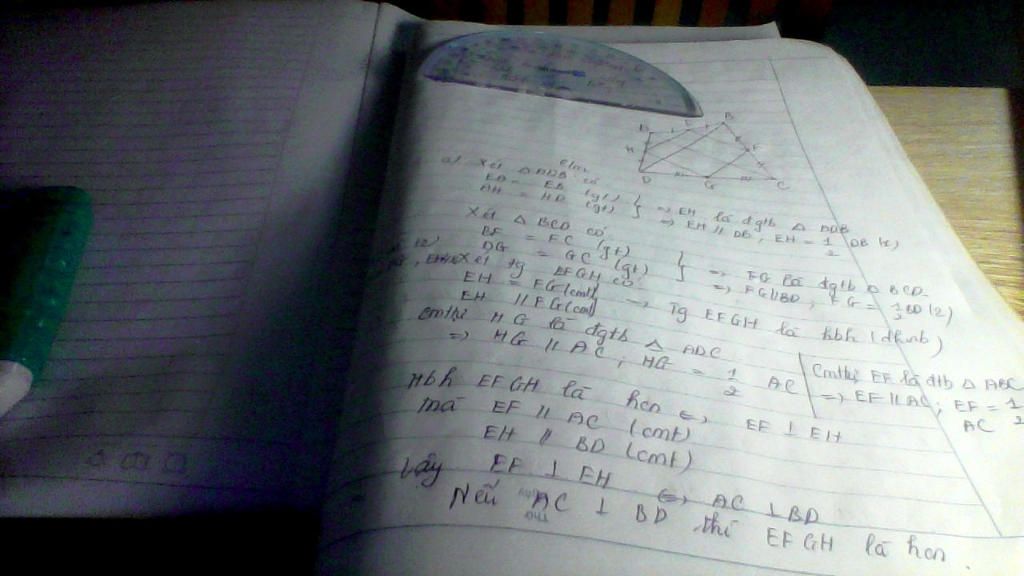 a) Xét △ ADB có
EA = EB (gt)
AH = HD (gt)
} => EH là đgtb △ ADB
=> EH // DB, EH = 1/2 DB (1)
Xét △ BCD có
BF = FC (gt)
DG = GC (gt)
} => FG là đgtb △ BCD
=> FG // BD, FG = 1/2 BD (2)
Xét tg EFGH có
EH = FG (cmt)
EH // FG (cmt)
=> Tg EFGH là hbh (dhnb)
Cmtt: HG là đgtb △ ADC
=> HG // AC; HG = 1/2 AC
Cmtt: EF là đtb △ ABC
=> EF // AC; EF = 1/2
AC
Hbh EFGH là hcn <=> EF ⊥ EH
mà EF // AC (cmt)
EH // BD (cmt)
Vậy EF ⊥ EH <=> AC ⊥ BD
Nếu AC ⊥ BD thì EFGH là hcn.